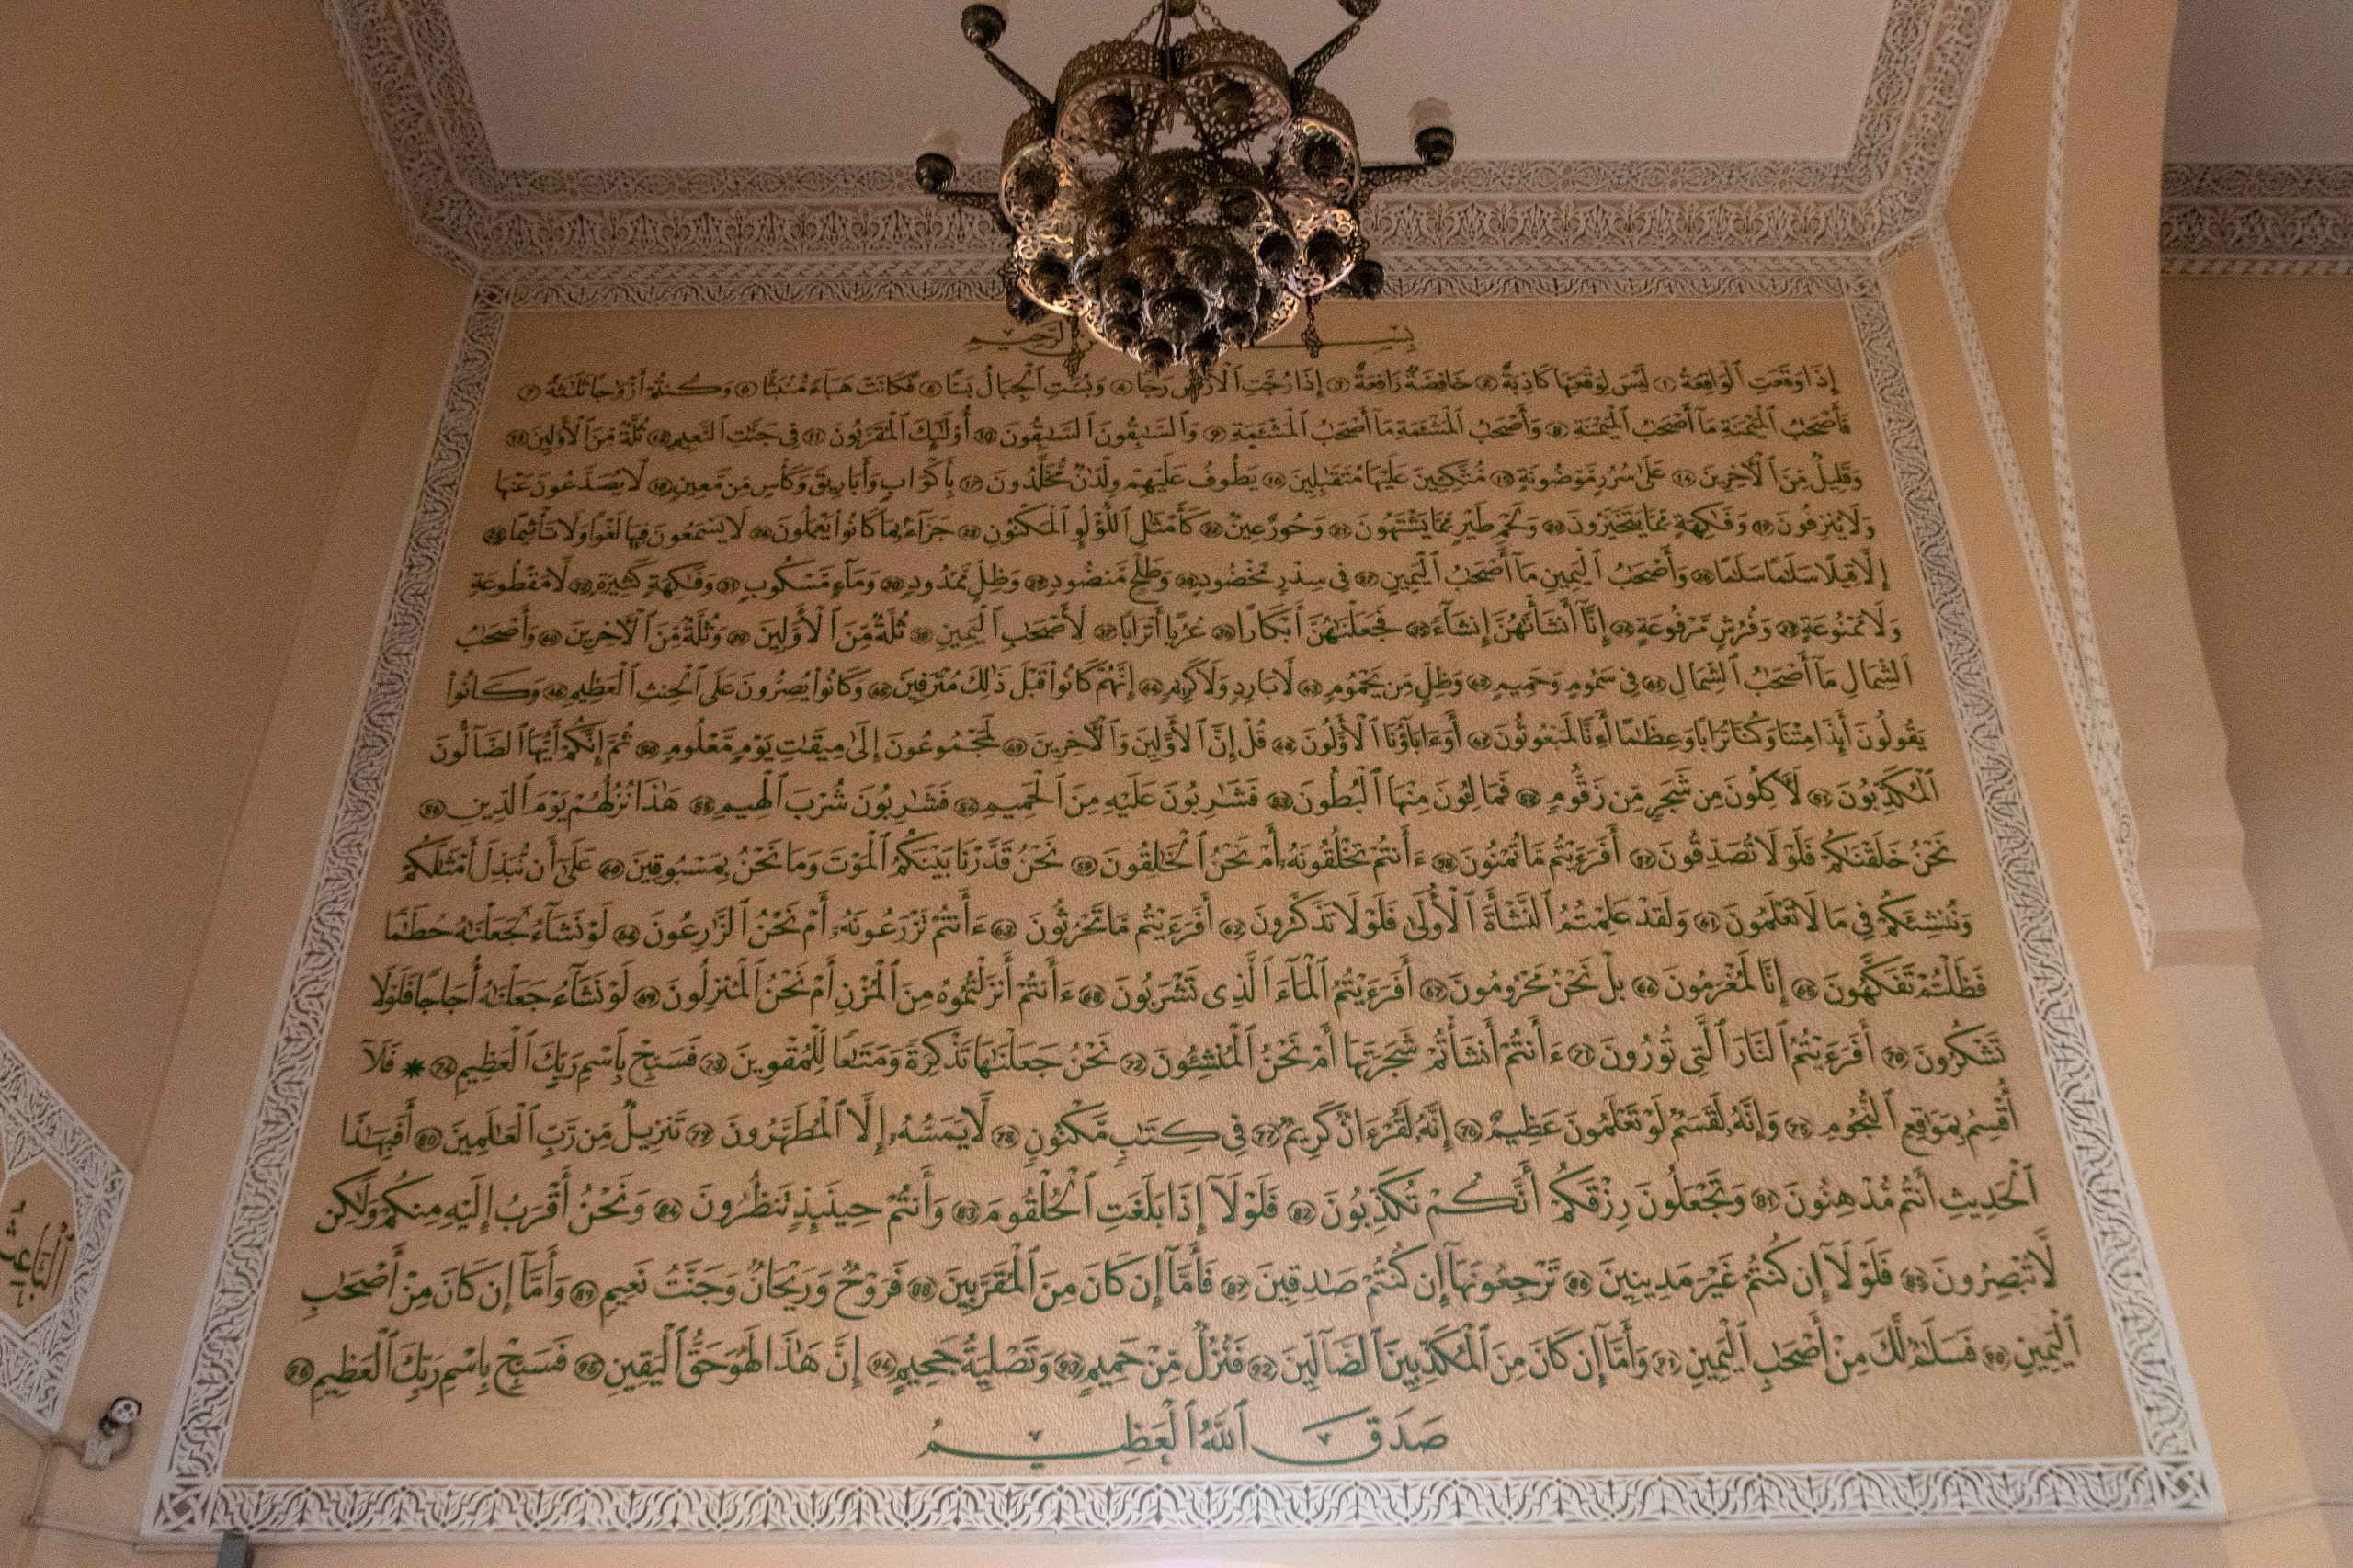 بِسْـــــ ٱلرَّحِيمِ
إِذَا وَقَعَتِ ٱلْوَاقِعَةُ ١ لَيْسَ لِوَقْعَتِهَا كَاذِبَةٌ ٢ خَافِضَةٌ رَّافِعَةٌ ٣ إِذَا رُجَّتِ ٱلْأَرْضُ رَجًّا ٤ وَبُسَّتِ ٱلْجِبَالُ بَسًّا ٥ فَكَانَتْ هَبَآءً مُّنۢبَثًّا ٦ وَكُنتُمْ أَزْوَٰجًا ثَلَٰثَةً ٧
فَأَصْحَٰبُ ٱلْمَيْمَنَةِ مَآ أَصْحَٰبُ ٱلْمَيْمَنَةِ ٨ وَأَصْحَٰبُ ٱلْمَشْـَٔمَةِ مَآ أَصْحَٰبُ ٱلْمَشْـَٔمَةِ ٩ وَٱلسَّٰبِقُونَ ٱلسَّٰبِقُونَ ١٠ أُو۟لَٰٓئِكَ ٱلْمُقَرَّبُونَ ١١ فِى جَنَّٰتِ ٱلنَّعِيمِ ١٢ ثُلَّةٌ مِّنَ ٱلْأَوَّلِينَ ١٣
وَقَلِيلٌ مِّنَ ٱلْءَاخِرِينَ ١٤ عَلَىٰ سُرُرٍ مَّوْضُونَةٍ ١٥ مُّتَّكِـِٔينَ عَلَيْهَا مُتَقَٰبِلِينَ ١٦ يَطُوفُ عَلَيْهِمْ وِلْدَٰنٌ مُّخَلَّدُونَ ١٧ بِأَكْوَابٍ وَأَبَارِيقَ وَكَأْسٍ مِّن مَّعِينٍ ١٨ لَّا يُصَدَّعُونَ عَنْهَا
وَلَا يُنزِفُونَ ١٩ وَفَٰكِهَةٍ مِّمَّا يَتَخَيَّرُونَ ٢٠ وَلَحْمِ طَيْرٍ مِّمَّا يَشْتَهُونَ ٢١ وَحُورٌ عِينٌ ٢٢ كَأَمْثَٰلِ ٱللُّؤْلُؤِ ٱلْمَكْنُونِ ٢٣ جَزَآءًۢ بِمَا كَانُوا۟ يَعْمَلُونَ ٢٤ لَا يَسْمَعُونَ فِيهَا لَغْوًا وَلَا تَأْثِيمًا ٢٥
إِلَّا قِيلًا سَلَٰمًا سَلَٰمًا ٢٦ وَأَصْحَٰبُ ٱلْيَمِينِ مَآ أَصْحَٰبُ ٱلْيَمِينِ ٢٧ فِى سِدْرٍ مَّخْضُودٍ ٢٨ وَطَلْحٍ مَّنضُودٍ ٢٩ وَظِلٍّ مَّمْدُودٍ ٣٠ وَمَآءٍ مَّسْكُوبٍ ٣١ وَفَٰكِهَةٍ كَثِيرَةٍ ٣٢ لَّا مَقْطُوعَةٍ
وَلَا مَمْنُوعَةٍ ٣٣ وَفُرُشٍ مَّرْفُوعَةٍ ٣٤ إِنَّآ أَنشَأْنَٰهُنَّ إِنشَآءً ٣٥ فَجَعَلْنَٰهُنَّ أَبْكَارًا ٣٦ عُرُبًا أَتْرَابًا ٣٧ لِّأَصْحَٰبِ ٱلْيَمِينِ ٣٨ ثُلَّةٌ مِّنَ ٱلْأَوَّلِينَ ٣٩ وَثُلَّةٌ مِّنَ ٱلْءَاخِرِينَ ٤٠ وَأَصْحَٰبُ
ٱلشِّمَالِ مَآ أَصْحَٰبُ ٱلشِّمَالِ ٤١ فِى سَمُومٍ وَحَمِيمٍ ٤٢ وَظِلٍّ مِّن يَحْمُومٍ ٤٣ لَّا بَارِدٍ وَلَا كَرِيمٍ ٤٤ إِنَّهُمْ كَانُوا۟ قَبْلَ ذَٰلِكَ مُتْرَفِينَ ٤٥ وَكَانُوا۟ يُصِرُّونَ عَلَى ٱلْحِنثِ ٱلْعَظِيمِ ٤٦ وَكَانُوا۟
يَقُولُونَ أَئِذَا مِتْنَا وَكُنَّا تُرَابًا وَعِظَٰمًا أَءِنَّا لَمَبْعُوثُونَ ٤٧ أَوَءَابَآؤُنَا ٱلْأَوَّلُونَ ٤٨ قُلْ إِنَّ ٱلْأَوَّلِينَ وَٱلْءَاخِرِينَ ٤٩ لَمَجْمُوعُونَ إِلَىٰ مِيقَٰتِ يَوْمٍ مَّعْلُومٍ ٥٠ ثُمَّ إِنَّكُمْ أَيُّهَا ٱلضَّآلُّونَ
ٱلْمُكَذِّبُونَ ٥١ لَءَاكِلُونَ مِن شَجَرٍ مِّن زَقُّومٍ ٥٢ فَمَالِـُٔونَ مِنْهَا ٱلْبُطُونَ ٥٣ فَشَٰرِبُونَ عَلَيْهِ مِنَ ٱلْحَمِيمِ ٥٤ فَشَٰرِبُونَ شُرْبَ ٱلْهِيمِ ٥٥ هَٰذَا نُزُلُهُمْ يَوْمَ ٱلدِّينِ ٥٦
نَحْنُ خَلَقْنَٰكُمْ فَلَوْلَا تُصَدِّقُونَ ٥٧ أَفَرَءَيْتُم مَّا تُمْنُونَ ٥٨ ءَأَنتُمْ تَخْلُقُونَهُۥٓ أَمْ نَحْنُ ٱلْخَٰلِقُونَ ٥٩ نَحْنُ قَدَّرْنَا بَيْنَكُمُ ٱلْمَوْتَ وَمَا نَحْنُ بِمَسْبُوقِينَ ٦٠ عَلَىٰٓ أَن نُّبَدِّلَ أَمْثَٰلَكُمْ
وَنُنشِئَكُمْ فِى مَا لَا تَعْلَمُونَ ٦١ وَلَقَدْ عَلِمْتُمُ ٱلنَّشْأَةَ ٱلْأُولَىٰ فَلَوْلَا تَذَكَّرُونَ ٦٢ أَفَرَءَيْتُم مَّا تَحْرُثُونَ ٦٣ ءَأَنتُمْ تَزْرَعُونَهُۥٓ أَمْ نَحْنُ ٱلزَّٰرِعُونَ ٦٤ لَوْ نَشَآءُ لَجَعَلْنَٰهُ حُطَٰمًا
فَظَلْتُمْ تَفَكَّهُونَ ٦٥ إِنَّا لَمُغْرَمُونَ ٦٦ بَلْ نَحْنُ مَحْرُومُونَ ٦٧ أَفَرَءَيْتُمُ ٱلْمَآءَ ٱلَّذِى تَشْرَبُونَ ٦٨ ءَأَنتُمْ أَنزَلْتُمُوهُ مِنَ ٱلْمُزْنِ أَمْ نَحْنُ ٱلْمُنزِلُونَ ٦٩ لَوْ نَشَآءُ جَعَلْنَٰهُ أُجَاجًا فَلَوْلَا
تَشْكُرُونَ ٧٠ أَفَرَءَيْتُمُ ٱلنَّارَ ٱلَّتِى تُورُونَ ٧١ ءَأَنتُمْ أَنشَأْتُمْ شَجَرَتَهَآ أَمْ نَحْنُ ٱلْمُنشِـُٔونَ ٧٢ نَحْنُ جَعَلْنَٰهَا تَذْكِرَةً وَمَتَٰعًا لِّلْمُقْوِينَ ٧٣ فَسَبِّحْ بِٱسْمِ رَبِّكَ ٱلْعَظِيمِ ٧٤ ✷ فَلَآ
أُقْسِمُ بِمَوَٰقِعِ ٱلنُّجُومِ ٧٥ وَإِنَّهُۥ لَقَسَمٌ لَّوْ تَعْلَمُونَ عَظِيمٌ ٧٦ إِنَّهُۥ لَقُرْءَانٌ كَرِيمٌ ٧٧ فِى كِتَٰبٍ مَّكْنُونٍ ٧٨ لَّا يَمَسُّهُۥٓ إِلَّا ٱلْمُطَهَّرُونَ ٧٩ تَنزِيلٌ مِّن رَّبِّ ٱلْعَٰلَمِينَ ٨٠ أَفَبِهَٰذَا
ٱلْحَدِيثِ أَنتُم مُّدْهِنُونَ ٨١ وَتَجْعَلُونَ رِزْقَكُمْ أَنَّكُمْ تُكَذِّبُونَ ٨٢ فَلَوْلَآ إِذَا بَلَغَتِ ٱلْحُلْقُومَ ٨٣ وَأَنتُمْ حِينَئِذٍ تَنظُرُونَ ٨٤ وَنَحْنُ أَقْرَبُ إِلَيْهِ مِنكُمْ وَلَٰكِن
لَّا تُبْصِرُونَ ٨٥ فَلَوْلَآ إِن كُنتُمْ غَيْرَ مَدِينِينَ ٨٦ تَرْجِعُونَهَآ إِن كُنتُمْ صَٰدِقِينَ ٨٧ فَأَمَّآ إِن كَانَ مِنَ ٱلْمُقَرَّبِينَ ٨٨ فَرَوْحٌ وَرَيْحَانٌ وَجَنَّتُ نَعِيمٍ ٨٩ وَأَمَّآ إِن كَانَ مِنْ أَصْحَٰبِ
ٱلْيَمِينِ ٩٠ فَسَلَٰمٌ لَّكَ مِنْ أَصْحَٰبِ ٱلْيَمِينِ ٩١ وَأَمَّآ إِن كَانَ مِنَ ٱلْمُكَذِّبِينَ ٱلضَّآلِّينَ ٩٢ فَنُزُلٌ مِّنْ حَمِيمٍ ٩٣ وَتَصْلِيَةُ جَحِيمٍ ٩٤ إِنَّ هَٰذَا لَهُوَ حَقُّ ٱلْيَقِينِ ٩٥ فَسَبِّحْ بِٱسْمِ رَبِّكَ ٱلْعَظِيمِ ٩٦
صَدَقَ ٱللَّهُ ٱلْعَظِيمُ
ٱلْبَاعِثُ